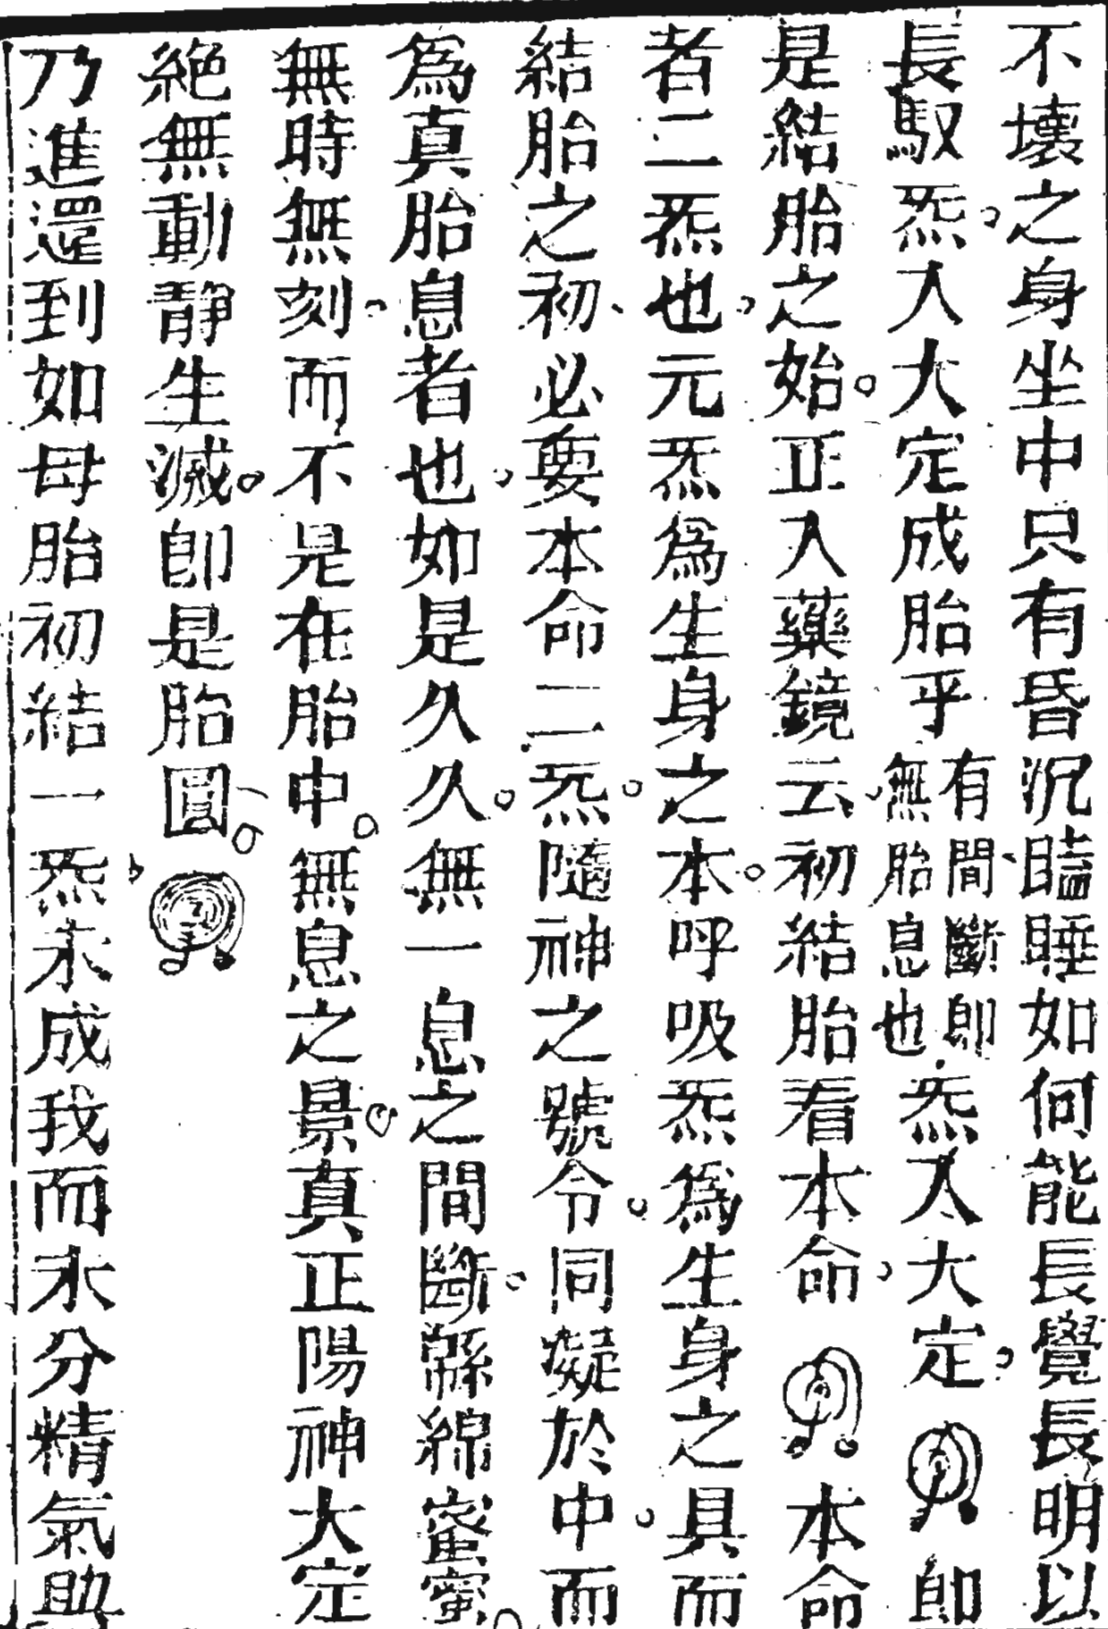 不壞之身坐中只有昏沉瞌睡如何能長覺長明以
長馭炁入大定成胎乎有間斷卽無胎息也炁入大定卽
是結胎之始正入藥鏡云初結胎看本命本命
者二炁也元炁為生身之本呼吸炁為生身之具而
結胎之初必要本命二炁隨神之號令同凝於中而
為真胎息者也如是久久無一息之間斷綿綿蜜蜜
無時無刻而不是在胎中無息之景真正陽神大定
絕無動靜生滅卽是胎圓
乃進還到如母胎初結一炁未成我而未分精氣時